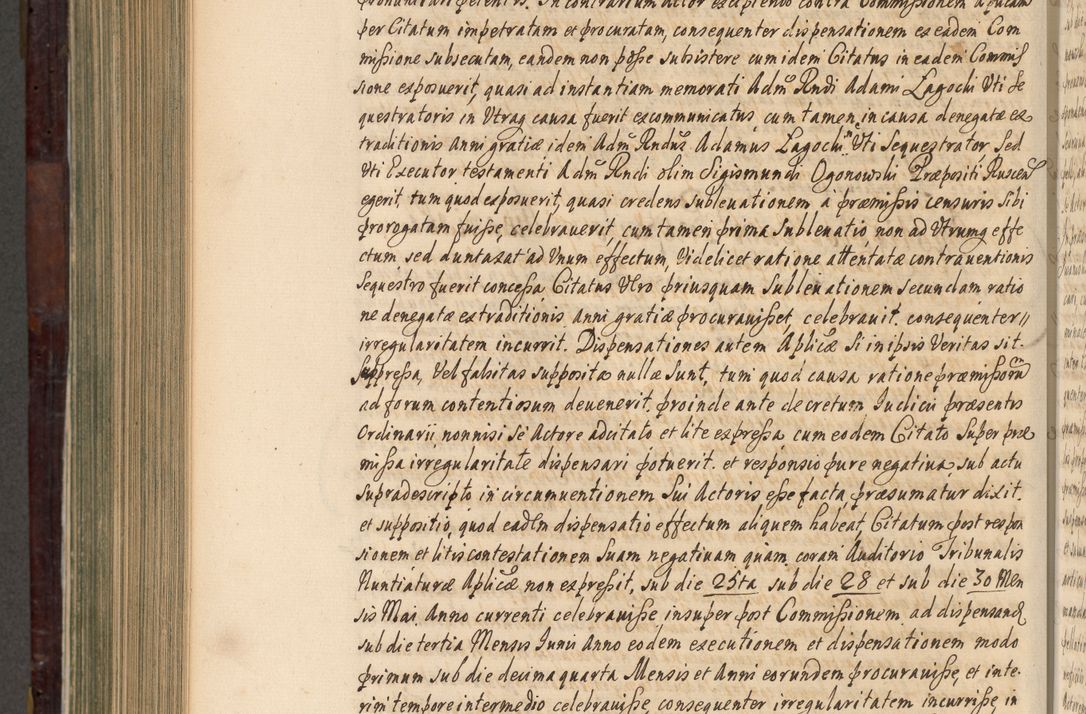 pronuntiari petent rs. In contrarium actor excipiendo contra Commißionem apud
per Citatum impetratam et procuratam, consequenter dispensationem ex eadem Com
mißione subsecutam, eandem non poße subsistere cum idem Citatus in eadem Commiß
sione exposuerit, quasi ad instantiam memorati Adm Rndi Adami Lagocki Uti Se
questratoris in Utraq causa fuerit excommunicatus, cum tamen in causa denegatæ ex
traditionis anni gratiæ idem Adm Rndus Adamus Lagocki n Uti Sequestrator, Sed
Uti Executor testamenti Adm Rndi olim Sigismundi Ogonowski Præpositi Ruscen
egerit, tum quod exposuerit, quasi credens sublevationem à præmißis censuris Sibi
prorogatam fuiße, celebraverit, cum tamen prima Sublevatio non ad Utrumq effe
ctum sed duntaxat ad Unum effectum, Videlicet ratione attentatæ contraventionis
Sequestro fuerit conceßa, Citatus Utro priusquam Sublevationem secundam ratio
ne denegatæ extraditionis Anni gratiæ procuravißet, celebravit. consequenter //
irregularitatem incurrit. Dispensationes autem Aplicæ Si in ipsis Veritas sit
Suppreßa, Vel falsitas supposita nullæ Sunt, tum quod causa ratione præmißorum
ad forum contentiosum devenerit. proinde ante decretum Iudicii præsentis
Ordinarii, nonnisi Se Actore adcitato et lite expreßa cum eodem Citato Super præ
mißa irregularitate dispensari potuerit. et responsio pure negativa, sub actu
supradescripto in circumventionem Sui Actoris, eße facta præsumatur dixit.
et supposito, quod eadem dispensatio effectum aliquem habeat, Citatum post respon
sionem et litis contestationem Suam negativam quam coram Auditorio Tribunalis
Nuntiaturæ Aplicæ non expreßit, sub die 25ta sub die 28 et sub die 30 Men
sis Maii Anno currenti celebraviße insuper post Commißionem ad dispensand
sub die tertia Mensis Iunii Anno eodem executionem et dispensationem modo
primum sub die decima quarta Mensis et Anni eorundem procuraviße, et inte
rim tempore intermedio celebraviße, consequenter irregularitatem incurriße, in